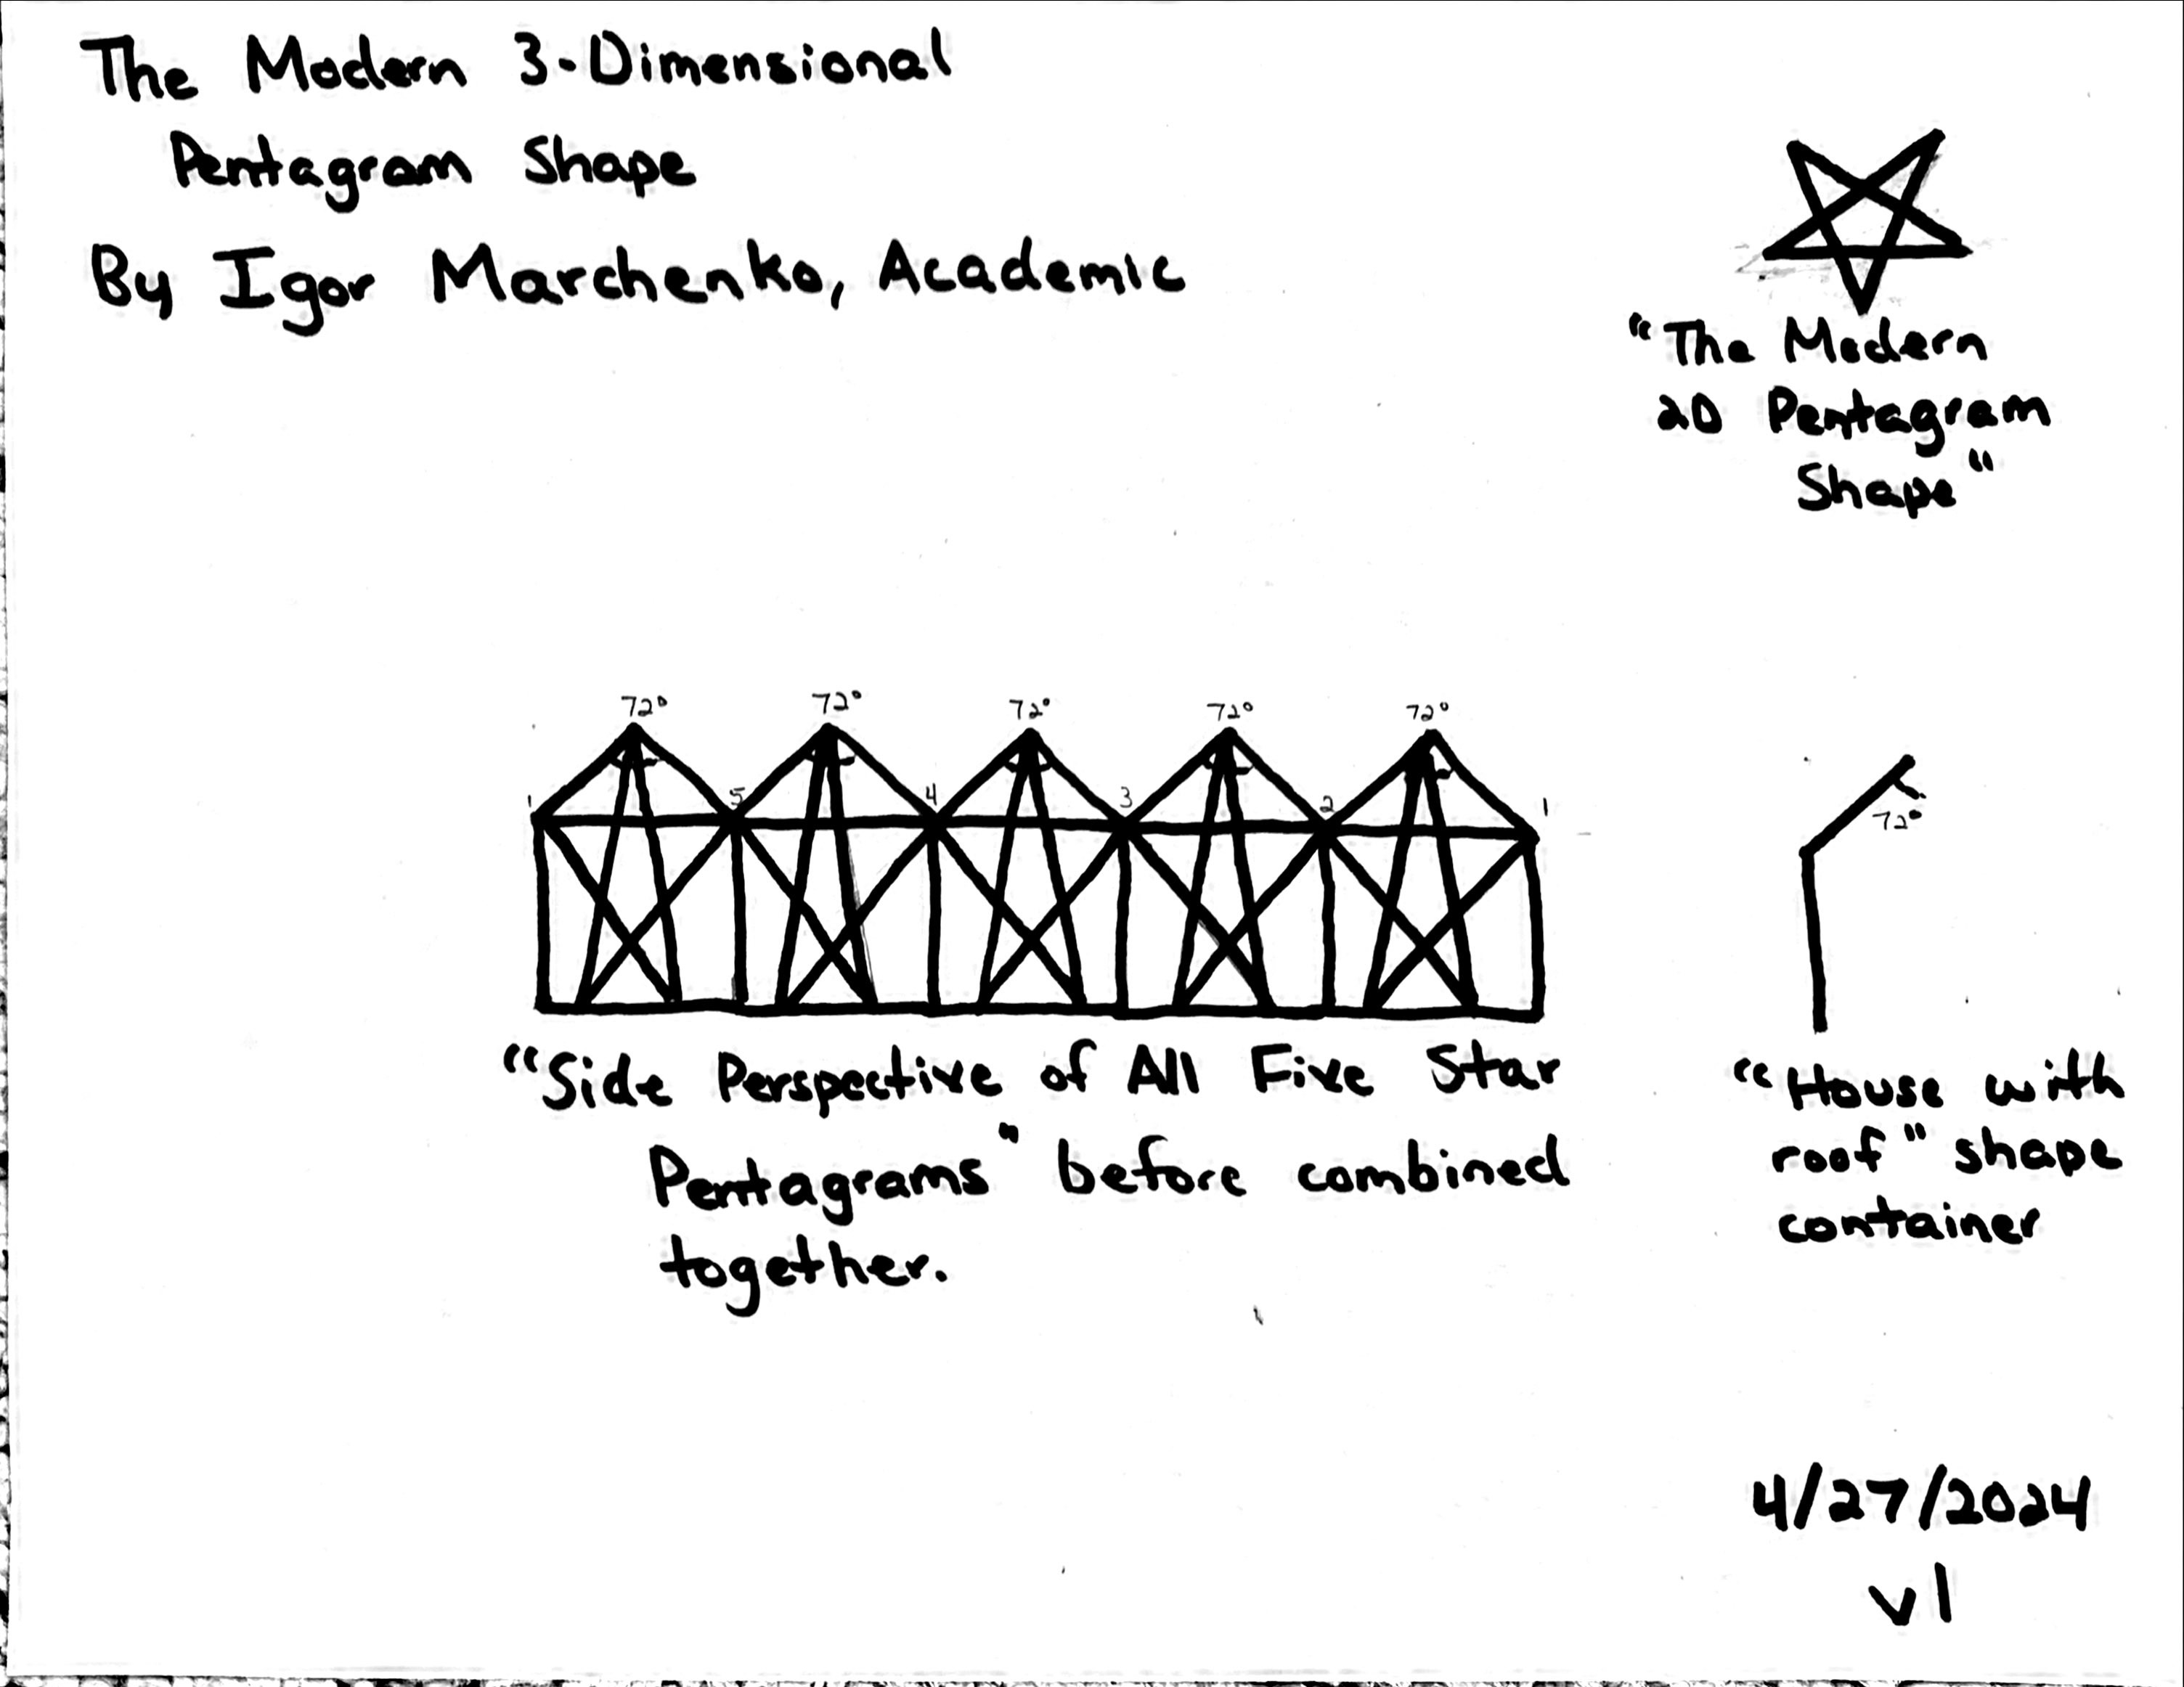 The Modern 3-Dimensional
Pentagram Shape
By Igor Marchenko, Academic
"The Modern
2D Pentagram
Shape"
72° 72° 72° 72° 72°
1 5 4 3 2 1
72°
"Side Perspective of All Five Star
Pentagrams" before combined
together.
"House with
roof" shape
container
4/27/2024
v1